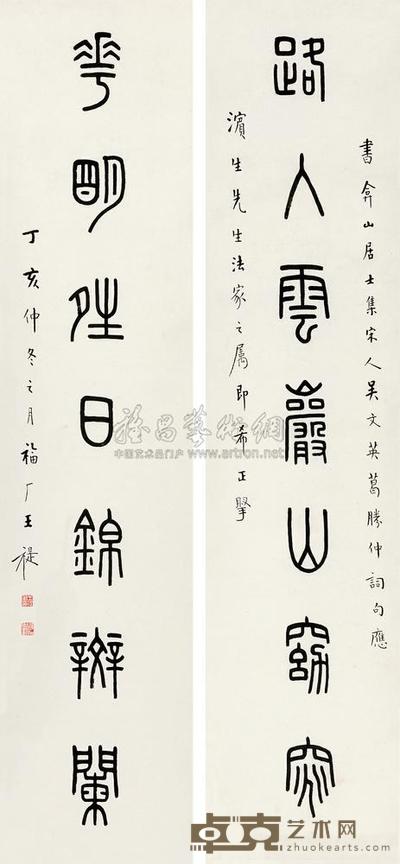 路入雲巖山窈窕
書弇山居士集宋人吳文英葛勝仲詞句應
濱生先生法家之屬即希正掔
華明夝日錦辬闌
丁亥仲冬之月福厂王禔
雅昌藝術網
中国艺术品门户 www.artron.net
卓克艺术网
www.zhuokearts.com